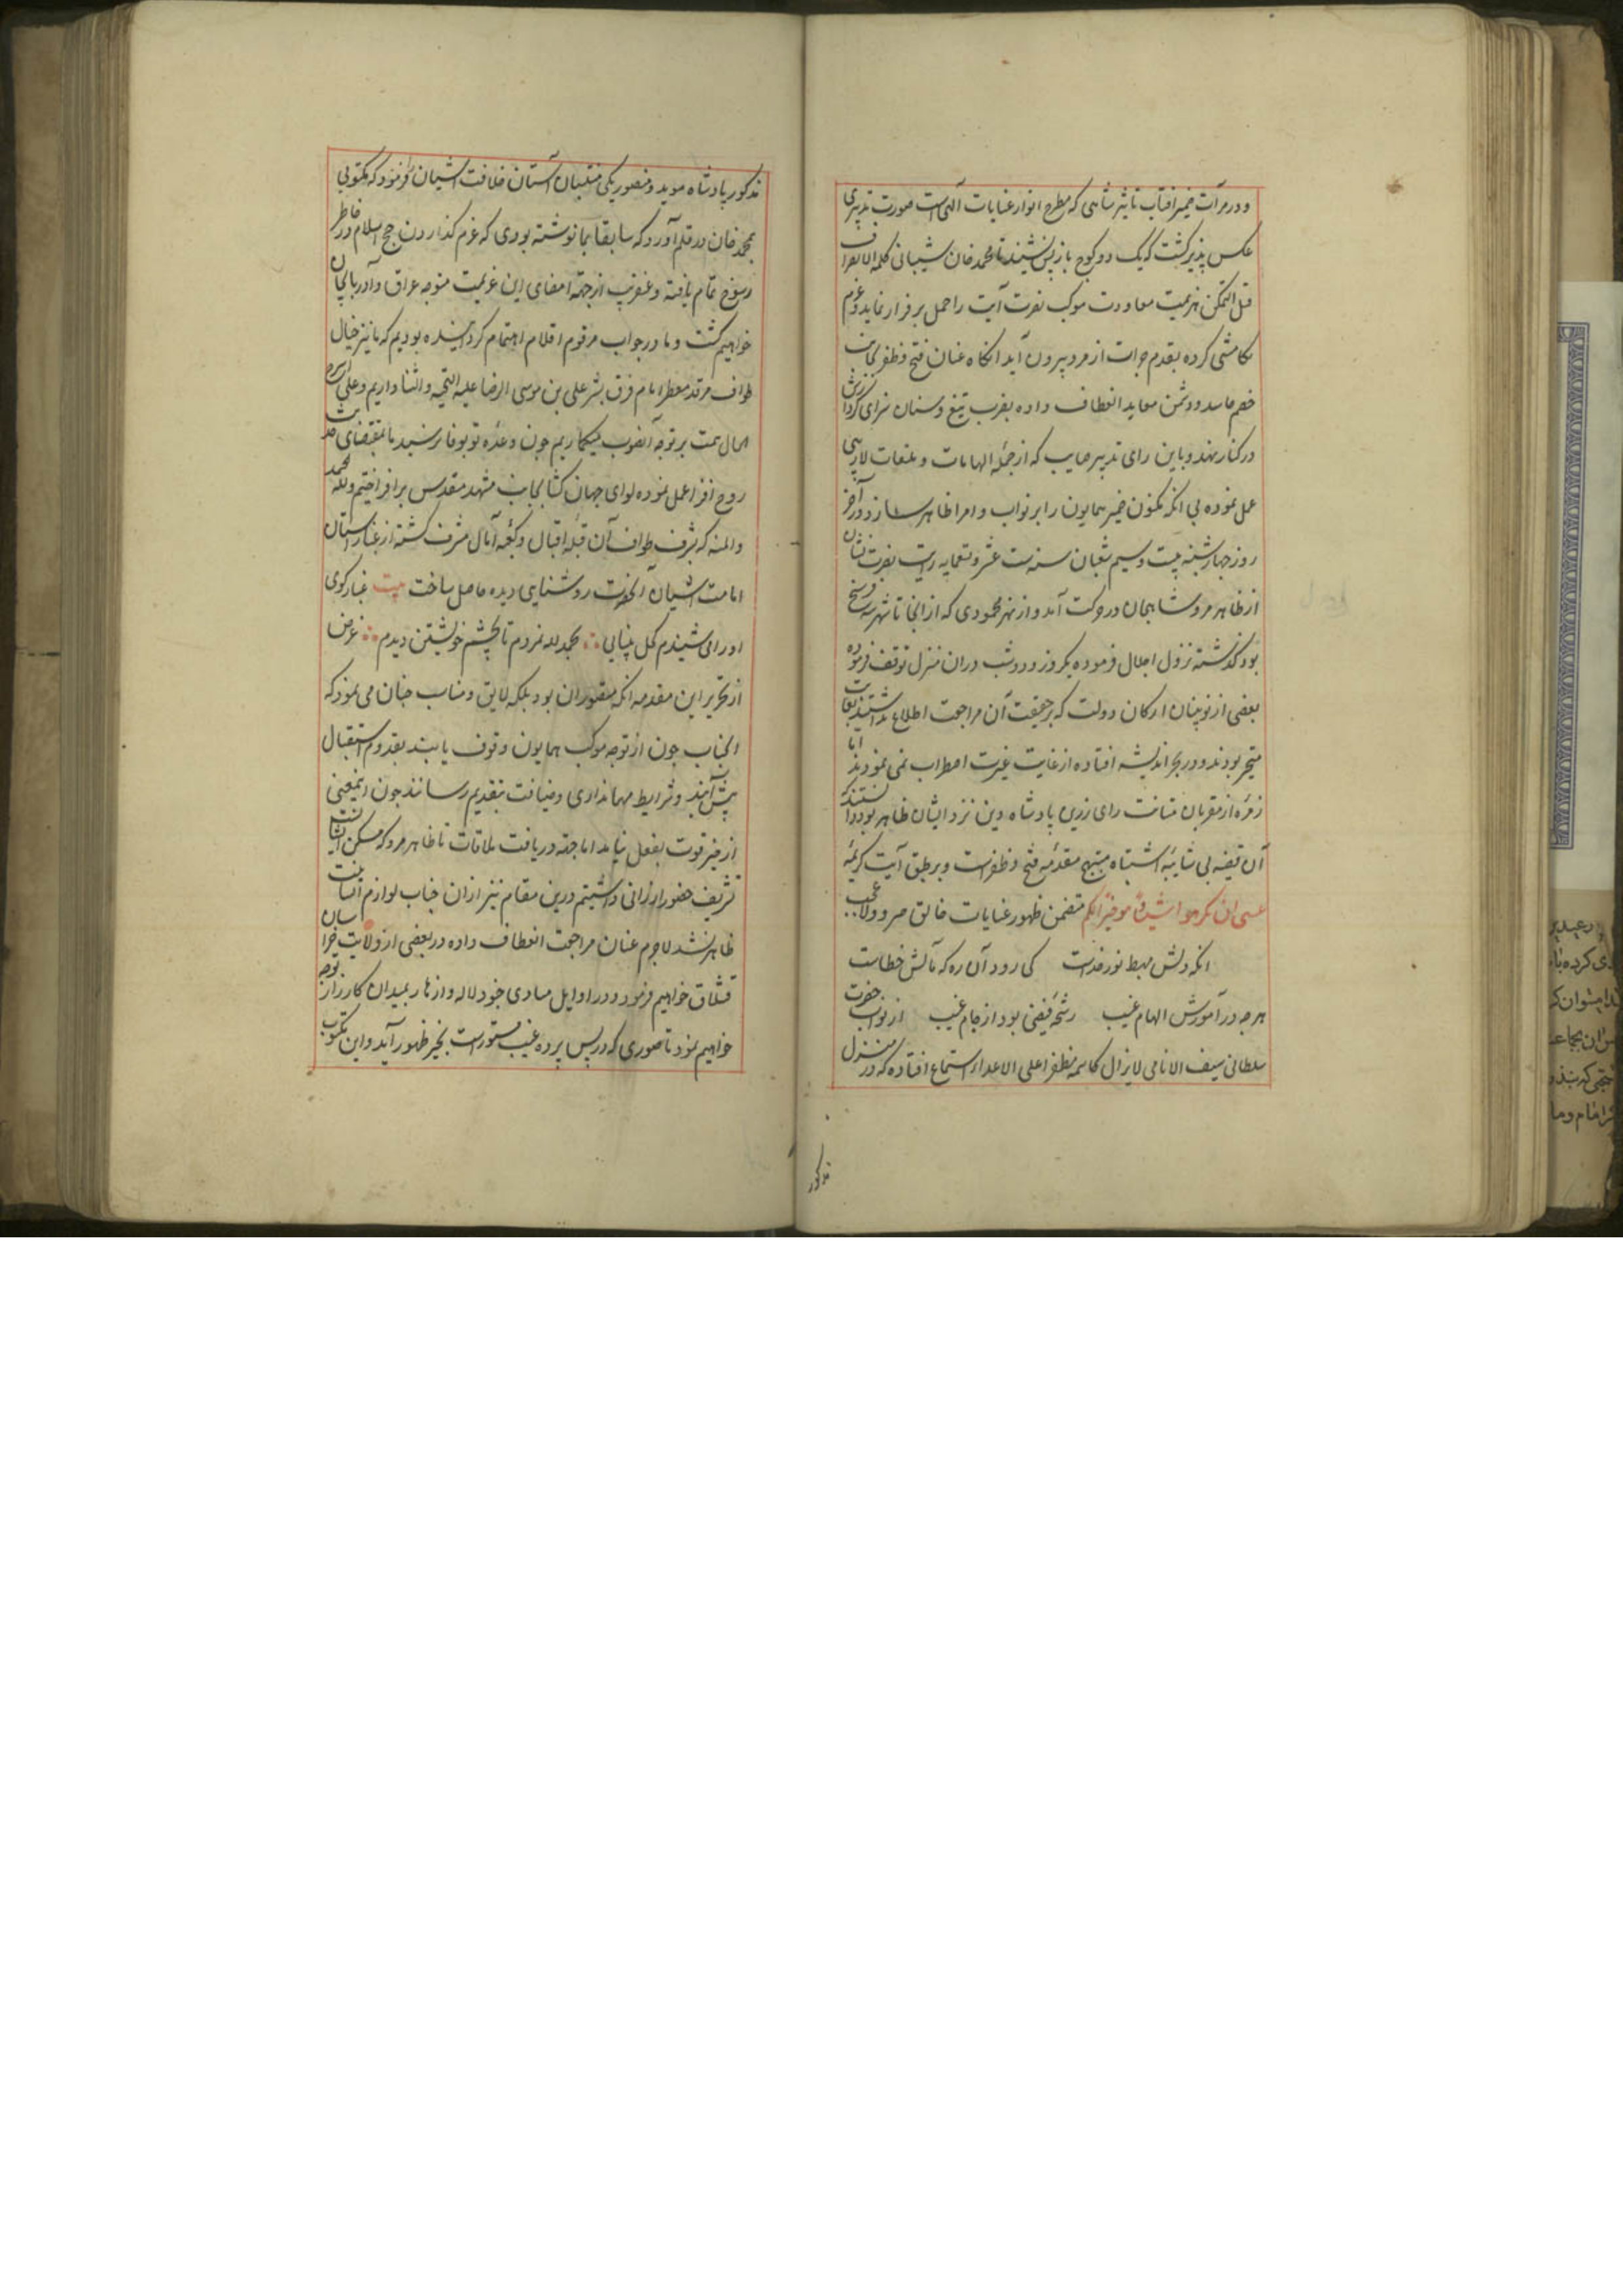 و در مرآت ضمیر آفتاب تاثیر شاهی که مطرح انوار عنایات الهی است صورت تدبیری
عکس پذیر گشت که یک دو کوچ باز پس نشیند تا محمد خان شیبانی کلمه الانصراف
قبل التمکن هزیمت معاودت موکب نصرت آیت را حمل بر فرار نماید و عزم
نکامشی کرده بقدم جرات از مرو بیرون آید انگاه عنان فتح و ظفر بجانب
خصم حاسد و دشمن معاند انعطاف داده بضرب تیغ و سنان سزای کردارش
در کنار نهند و باین رای تدبیر صایب که از جمله الهامات و ملهمات لاریبی
عمل نموده بی انکه مکنون ضمیر همایون را بر نواب و امرا ظاهر سازد در آخر
روز چهارشنبه بیست و سیم شعبان سنه ست عشر و تسعمایه رایت نصرت نشان
از ظاهر مرو شاهجان در حرکت آمد و از نهر محمودی که از انجا تا شهر سه فرسخ
بود گذشته نزول اجلال فرموده یکروز و دو شب دران منزل توقف فرموده
بعضی از نوینان ارکان دولت که بر حقیقت آن مراجعت اطلاع نداشتند بغایت
متحیر بودند و در بحر اندیشه افتاده از غایت غیرت اضطراب می نمودند اما
زمره از مقربان متانت رای رزین پادشاه دین نزد ایشان ظاهر بود دانستند که
آن قضیه بی شایبه اشتباه منتج مقدمه فتح و ظفرست و بر طبق آیت کریمه
عسی ان تکرهوا شیئا و هو خیر لکم متضمن ظهور عنایات خالق صرو ولاعجب
انکه دلش مهبط نور خداست کی رود آن ره که مآلش خطاست
هرچه در آموزش الهام غیب رشحه فیضی بود از جام غیب از نواب حضرت
سلطانی سیف الانامی لایزال کاسمه مظفرا علی الاعداء استماع افتاده که در منزل
مذکور
مذکور پادشاه موید و منصور یکی منتسبان آستان خلافت آشیان را فرمود که مکتوبی
بمحمد خان در قلم آورد که سابقا بما نوشته بودی که عزم گذاردن حج اسلام در خاطر
رسوخ تمام یافته و عنقریب از جهة امضای این عزیمت متوجه عراق و آذربایجان
خواهیم گشت و ما در جواب مرقوم اقلام اهتمام گردانیده بودیم که ما نیز خیال
طواف مرقد معطر امام فرق بشر علی بن موسی الرضا علیه التحیه و الثنا داریم و علی اسرع
الحال همت بر توجه آنصوب میگماریم چون وعده تو بوفا نرسید ما بمقتضای حدیث
روح افزا عمل نموده لوای جهان گشا بجانب مشهد مقدس برافراختیم و لله الحمد
والمنه که بشرف طواف آن قبله اقبال و کعبه آمال مشرف گشته از غبار آستان
امامت آشیان آنحضرت روشنایی دیده حاصل ساخت بیت غبار کوی
او را می شنیدم کحل بینایی بحمد لله نمردم تا بچشم خویشتن دیدم غرض
از تحریر این مقدمه انکه مقصور ان بود بلکه لایق و مناسب چنان می نمود که
انجناب چون از توجه موکب همایون وقوف یابند بقدوم استقبال
پیش آیند و شرایط مهمانداری و ضیافت بتقدیم رسانند چون اینمعنی
از حیز قوت بفعل نیامد اما جهة دریافت ملاقات تا ظاهر مرو که مسکن ایشانست
تشریف حضور ارزانی داشتیم درین مقام نیز ازان جناب لوازم انسانیت
ظاهر نشد لاجرم عنان مراجعت انعطاف داده در بعضی از ولایت خراسان
قشلاق خواهیم فرمود و در اوایل مبادی جنود لاله و ازهار بمیدان کارزار توجه
خواهیم نمود تا صوری که در پس پرده غیب مستورست بحیز ظهور آید و این مکتوب